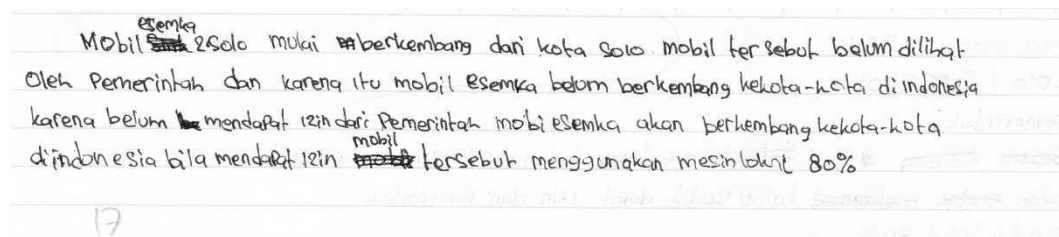 Mobil esemka 2 Solo mulai berkembang dari kota solo. mobil tersebut belum dilihat
oleh Pemerintah dan karena itu mobil esemka belum berkembang kekota-kota di indonesia
karena belum mendapat izin dari Pemerintah mobi esemka akan berkembang kekota-kota
diindonesia bila mendapat izin mobil tersebut menggunakan mesin 80%
17